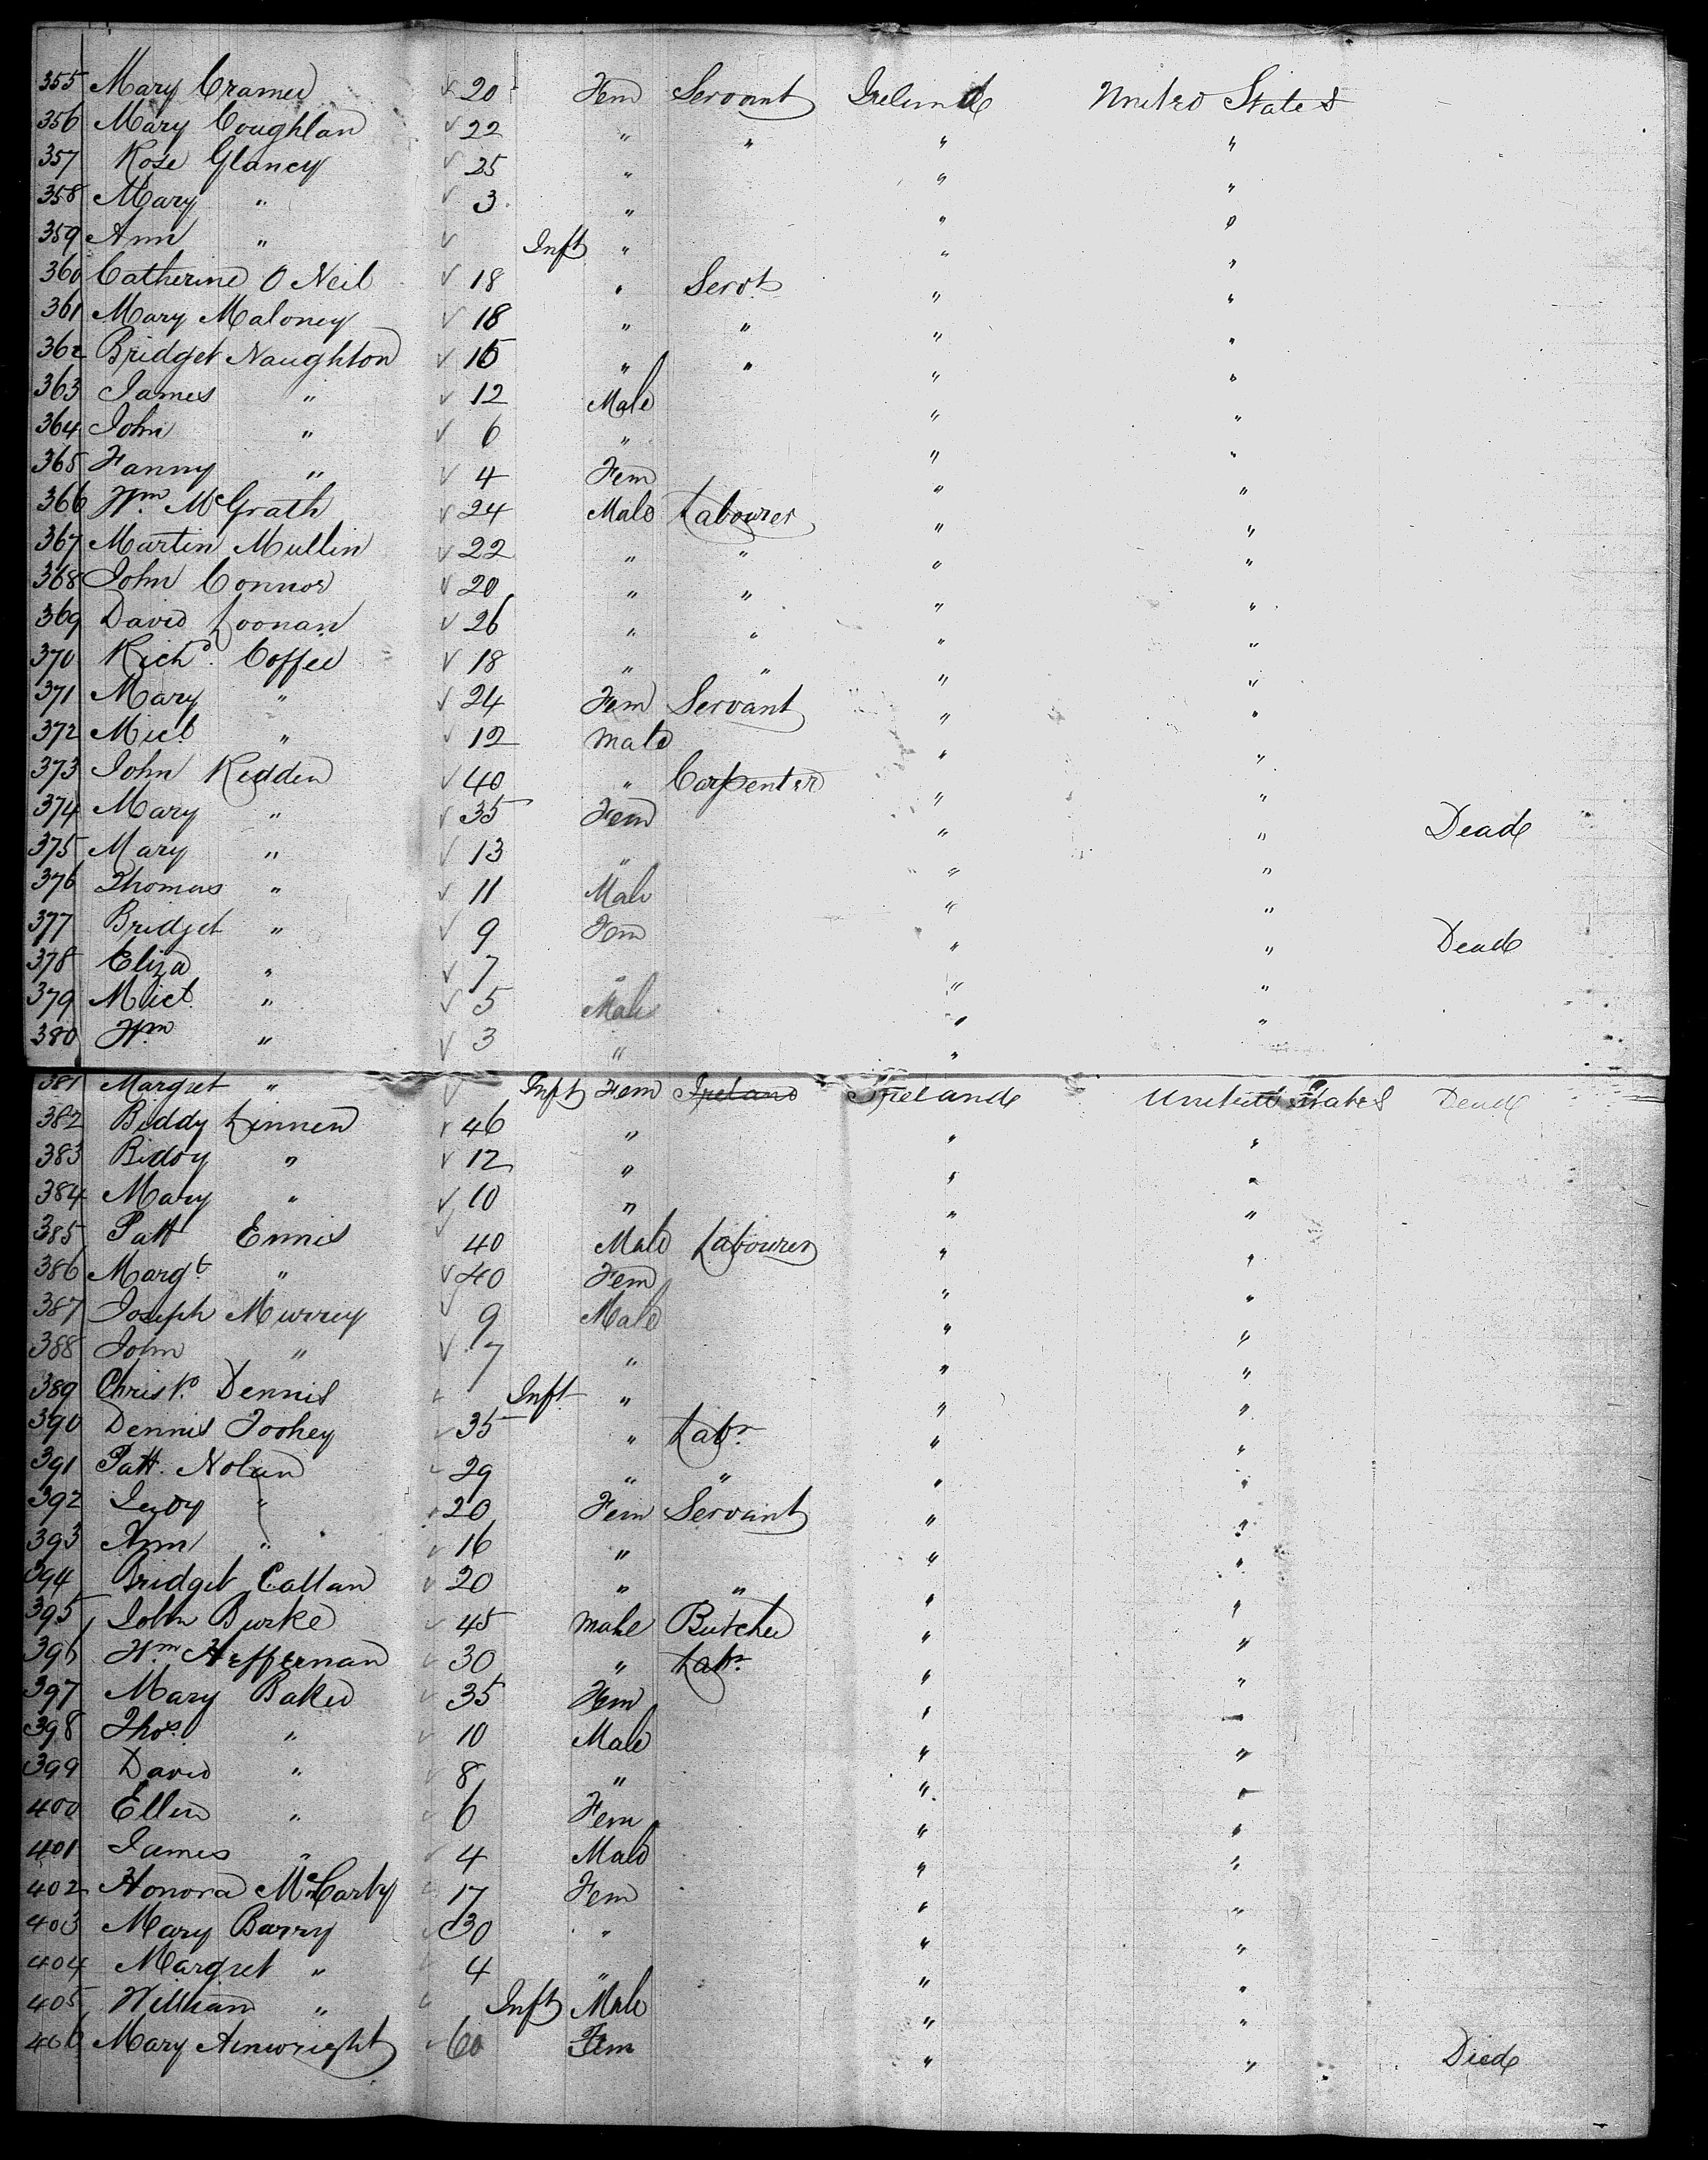 355 Mary Cramer 20 Fem Servant Ireland United States
356 Mary Coughlan 22 " " " "
357 Rose Glancy 25 " " "
358 Mary " 3 " " "
359 Ann " Inft " " "
360 Catherine O Neil 18 " Servt " "
361 Mary Maloney 18 " " " "
362 Bridget Naughton 15 " " " "
363 James " 12 Male " "
364 John " 6 " " "
365 Fanny " 4 Fem " "
366 Wm McGrath 24 Male Labourer " "
367 Martin Mullin 22 " " " "
368 John Connor 20 " " " "
369 David Loonan 26 " " " "
370 Richd. Coffee 18 " " " "
371 Mary " 24 Fem Servant " "
372 Micl " 12 male " "
373 John Redden 40 " Carpenter " "
374 Mary " 35 Fem " " Dead
375 Mary " 13 " " "
376 Thomas " 11 Male " "
377 Bridget " 9 Fem " " Dead
378 Eliza " 7 " " "
379 Micl. " 5 Male " "
380 Wm " 3 " " "
381 Margret " Inft Fem Ireland Ireland United States Dead
382 Biddy Linnen 46 " " "
383 Biddy " 12 " " "
384 Mary " 10 " " "
385 Patt Ennis 40 Male Labourer " "
386 Margt " 40 Fem " "
387 Joseph Murrey 9 Male " "
388 John " 7 " " "
389 Christo. Dennis Inft " " "
390 Dennis Toohey 35 " Labr. " "
391 Patt. Nolan 29 " " " "
392 Judy " 20 Fem Servant " "
393 Ann " 16 " " "
394 Bridget Callan 20 " " " "
395 John Burke 45 male Butcher " "
396 Wm Heffernan 30 " Labr. " "
397 Mary Baker 35 Fem " "
398 Thos. " 10 Male " "
399 David " 8 " " "
400 Ellen " 6 Fem " "
401 James " 4 Male " "
402 Honora McCarty 17 Fem " "
403 Mary Barry 30 " " "
404 Margret " 4 " " "
405 William " Inft Male " "
406 Mary Ainwright 60 Fem " " Died